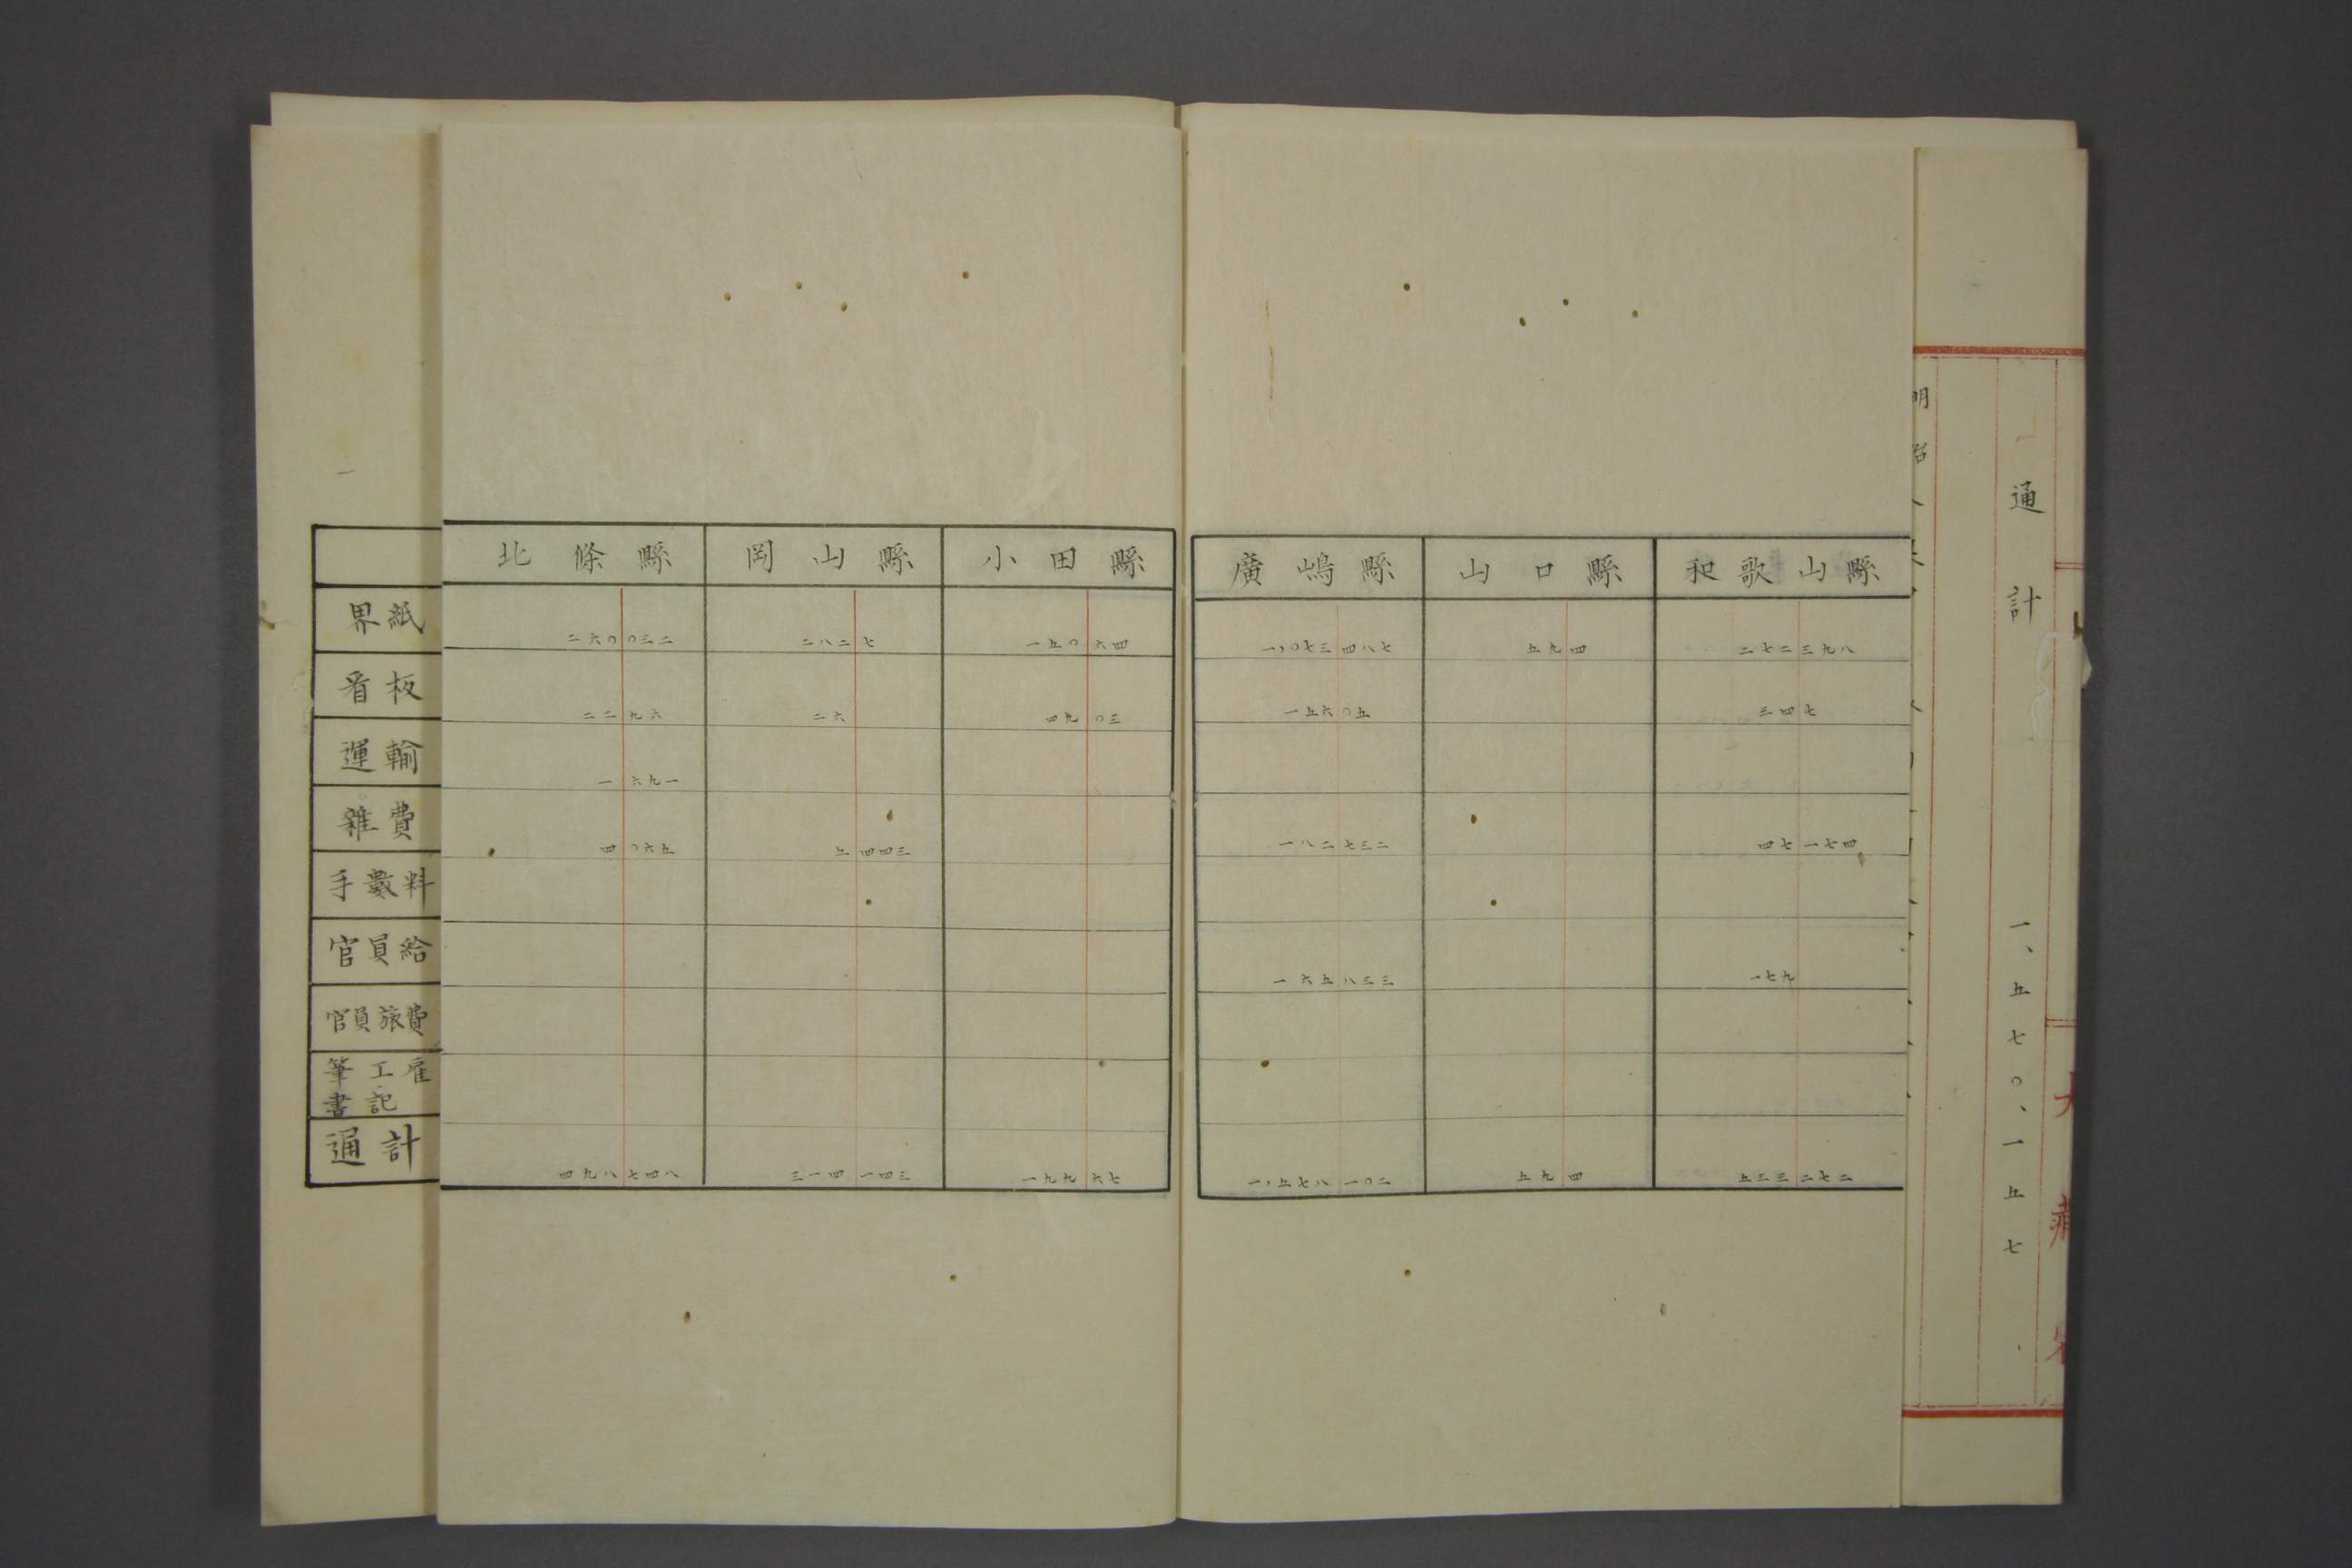 北條縣 岡山縣 小田縣 廣嶋縣 山口縣 和歌山縣
界紙 二六〇〇三二 二八二七 一五〇六四 一、〇七三四八七 五九四 二七二三九八
看板 二二九六 二六 四九〇三 一五六〇五 三四七
運輸 一六九一
雜費 四〇六五 五四四三 一八二七三二 四七一七四
手數料
官員給 一六五八三三 一七九
官員旅費
筆工雇
書記
通計 四九八七四八 三一四一四三 一九九六七 一、五七八一〇二 五九四 五三三二七二
通計 一、五七〇、一五七
明治